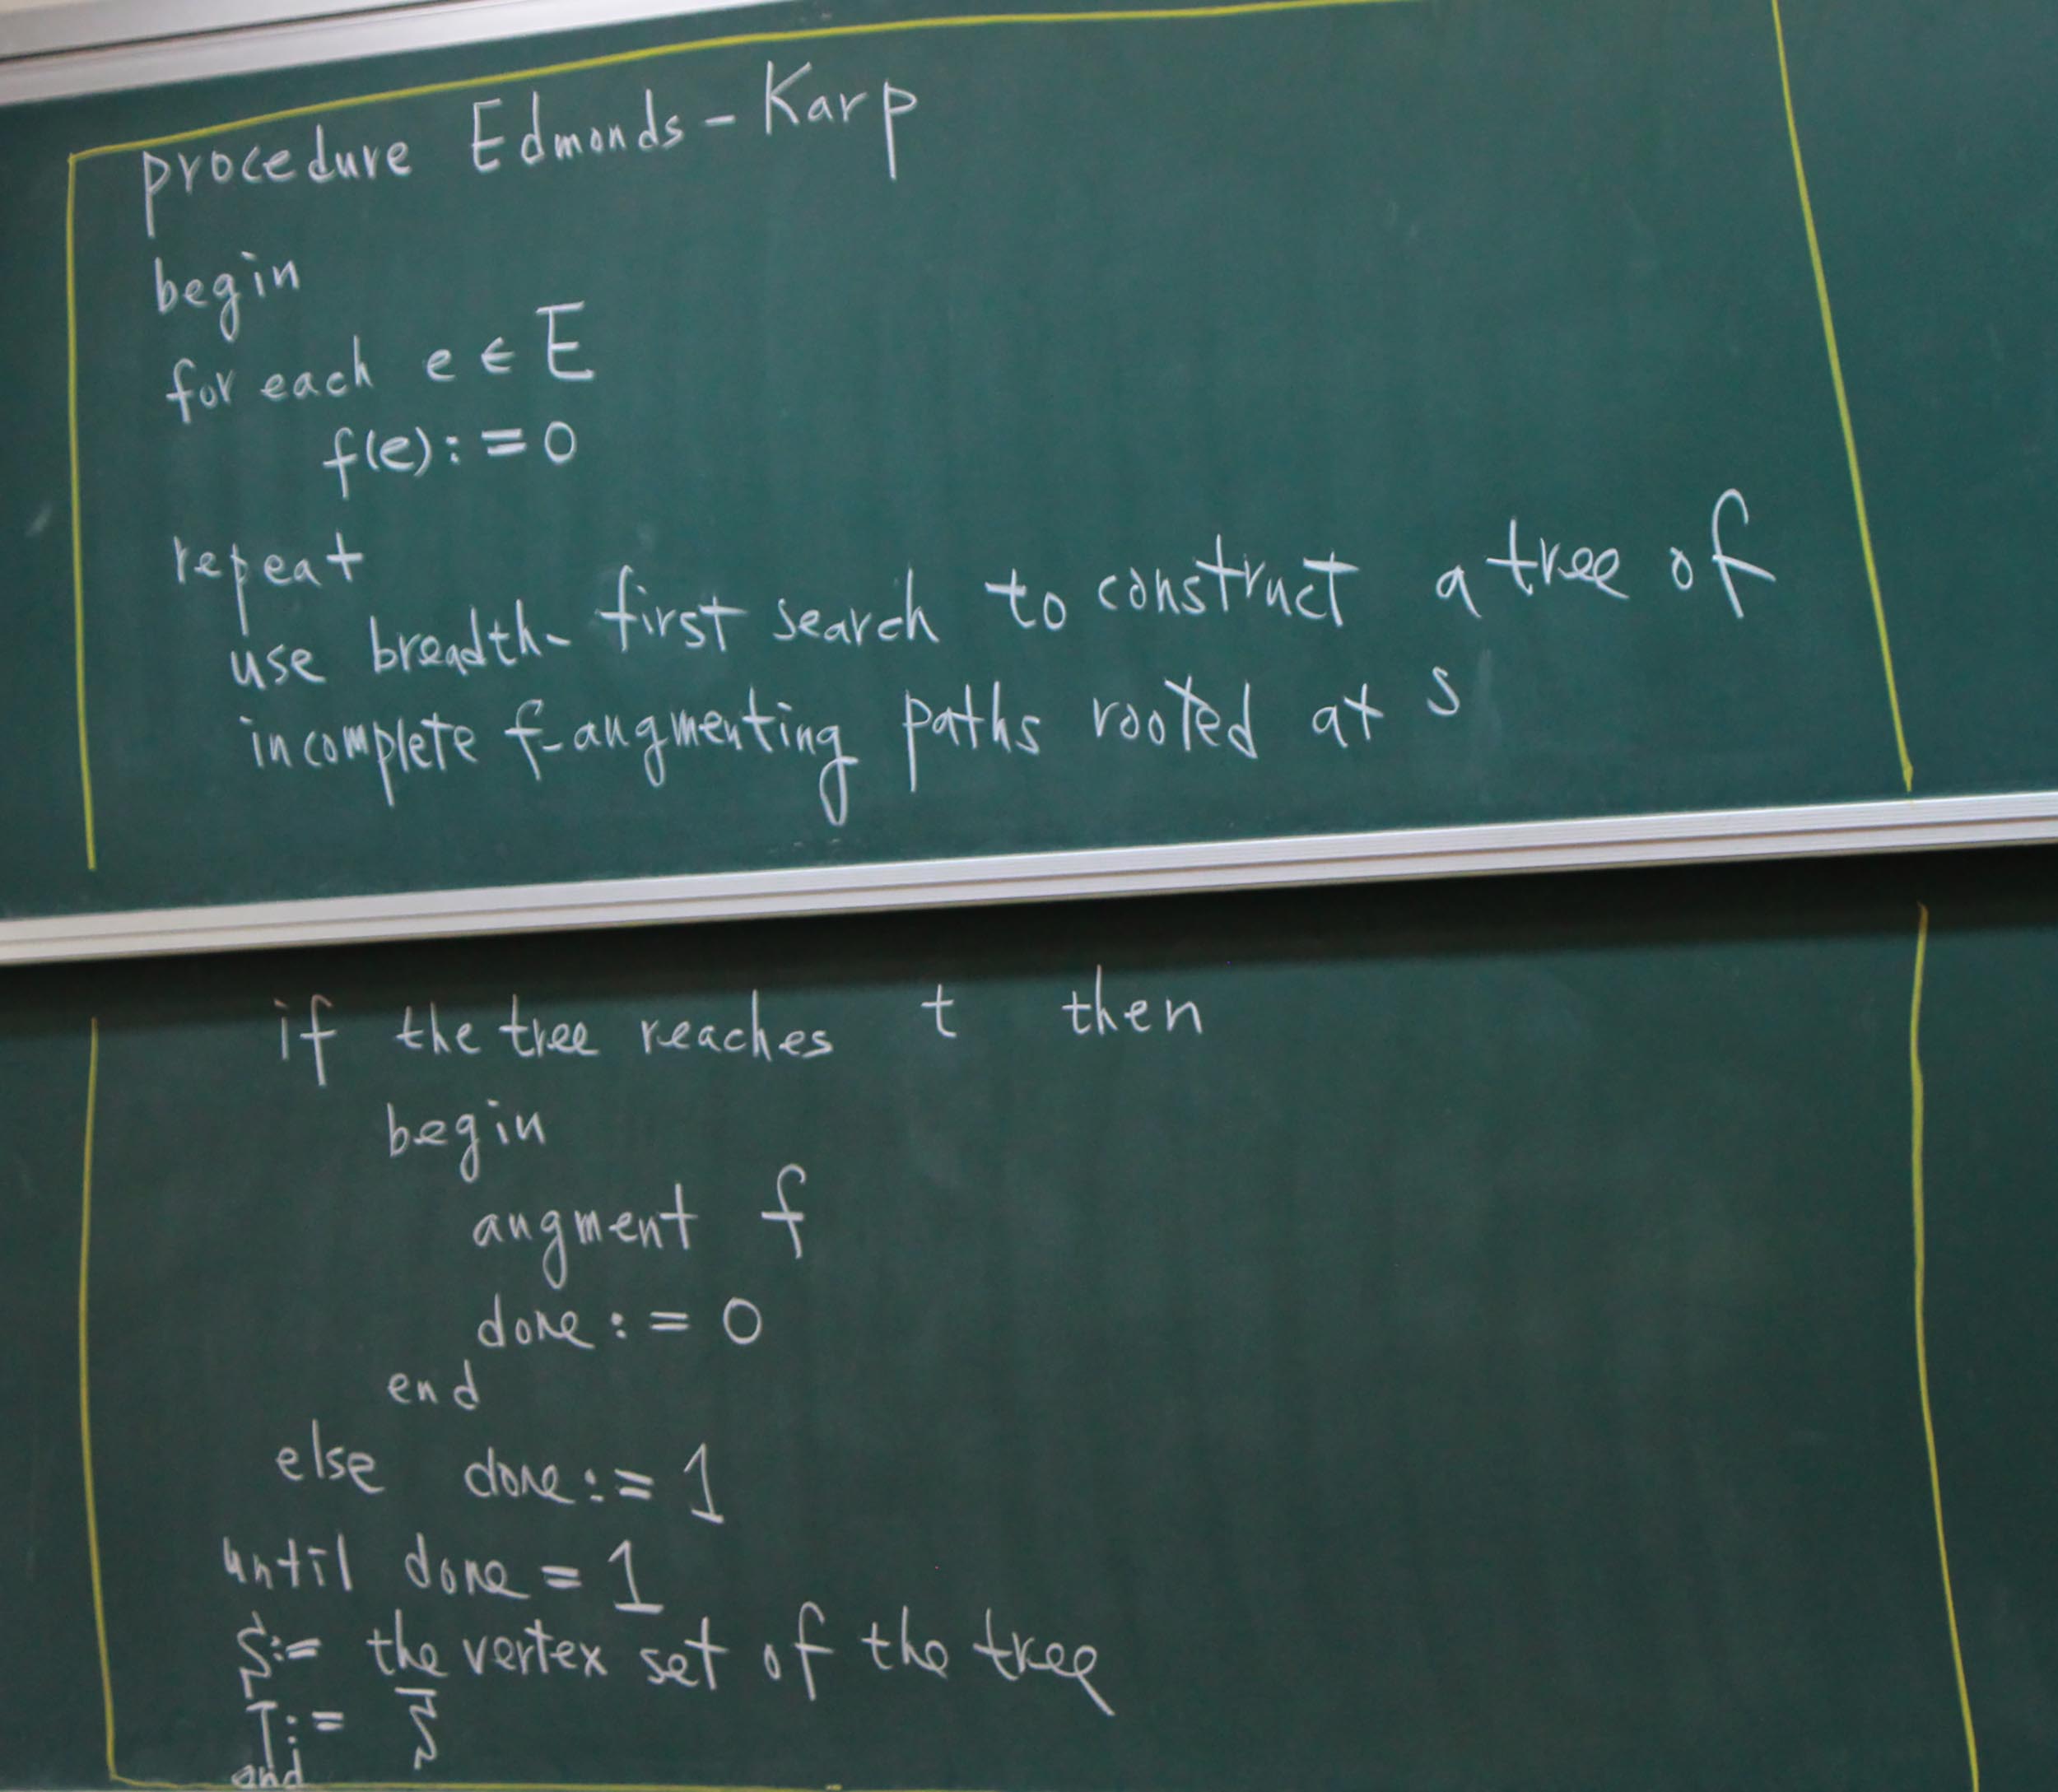 procedure Edmonds-Karp
begin
for each e ∈ E
f(e) := 0
repeat
use breadth-first search to construct a tree of
incomplete f-augmenting paths rooted at s
if the tree reaches t then
begin
augment f
done := 0
end
else done := 1
until done = 1
S := the vertex set of the tree
T := S̅
end